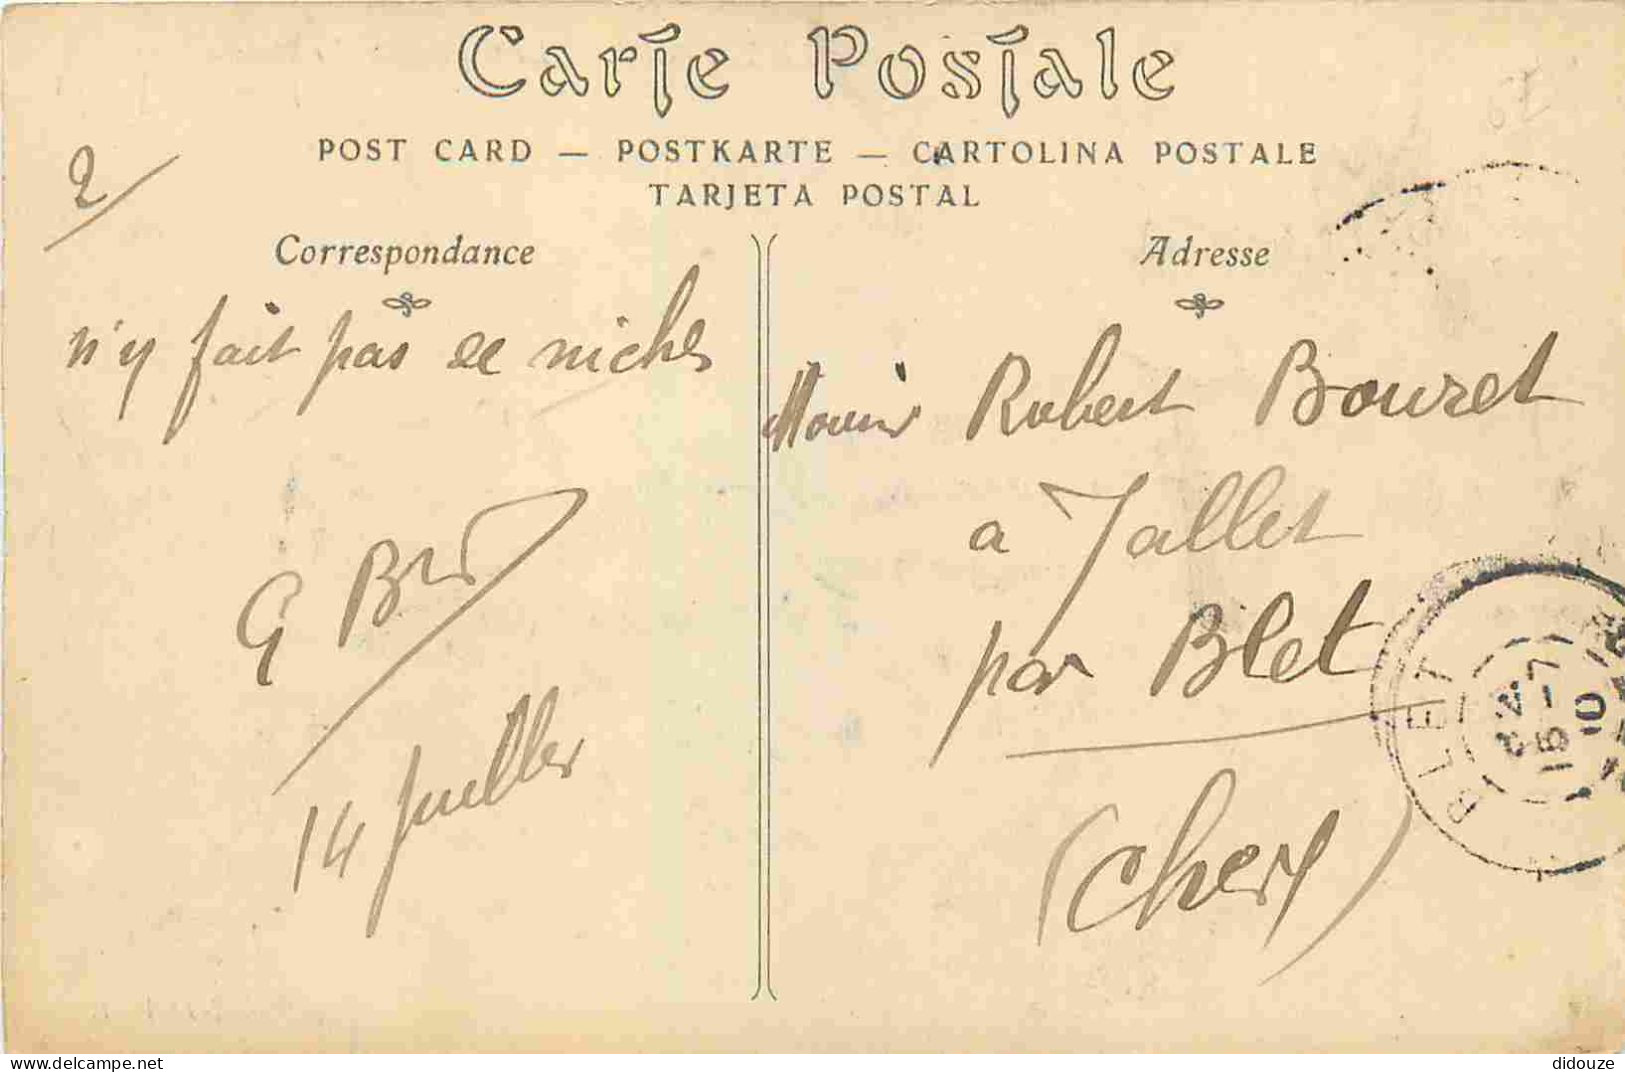 Carte Postale
POST CARD — POSTKARTE — CARTOLINA POSTALE
TARJETA POSTAL
2
Correspondance
n'y fait pas de niches
G B
14 Juillet
Adresse
Robert Bouret
a Jallet
par Blet
(Cher)
BLET
15-7
10
www.delcampe.net
didouze